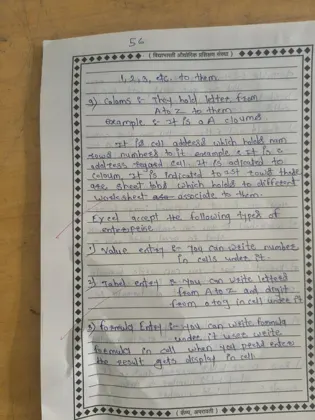 56
( विद्याभारती औद्योगिक प्रशिक्षण संस्था )
1, 2, 3, etc. to them
2) Colams :- They hold letter from
A to Z to them
example :- It is a A cloums
It is cell address which holds
towd numbers to it example :- It is a
address cell. It is
coloum, It is indicated to 1st towd there
are sheet tabd which holds to different
worksheet associate to them.
Excel accept the following types of
enterprise
1) Value entry :- You can write number
in cells under it.
2) Tabel entry :- You can write letters
from A to Z and digit
from 0 to 9 in cell under it
3) formula Entry :- You can write formula
under it uses write
formula in cell when you press enter
the result gets display in cell.
( संस्था, अमरावती )